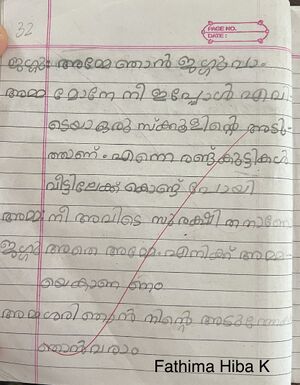 32
PAGE NO.
DATE:
ജഗ്ഗു: അമ്മേ ഞാൻ ജഗ്ഗുവാ.
അമ്മ മോനേ നീ ഇപ്പോൾ എവി-
ടെയാ ഒരു സ്ക്കൂളിന്റെ അടു-
ത്താണ്. എന്നെ രണ്ടുകുട്ടികൾ
വീട്ടിലേക്ക് കൊണ്ട് പോയി
അമ്മ നീ അവിടെ സുരക്ഷിതനാണോ
ജഗ്ഗു അതെ അമ്മേ. എനിക്ക് അമ്മ-
യെകാണണം
അമ്മ ശരി ഞാൻ നിന്റെ അടുത്തേക്ക്
ഞാൻവരാം
Fathima Hiba K